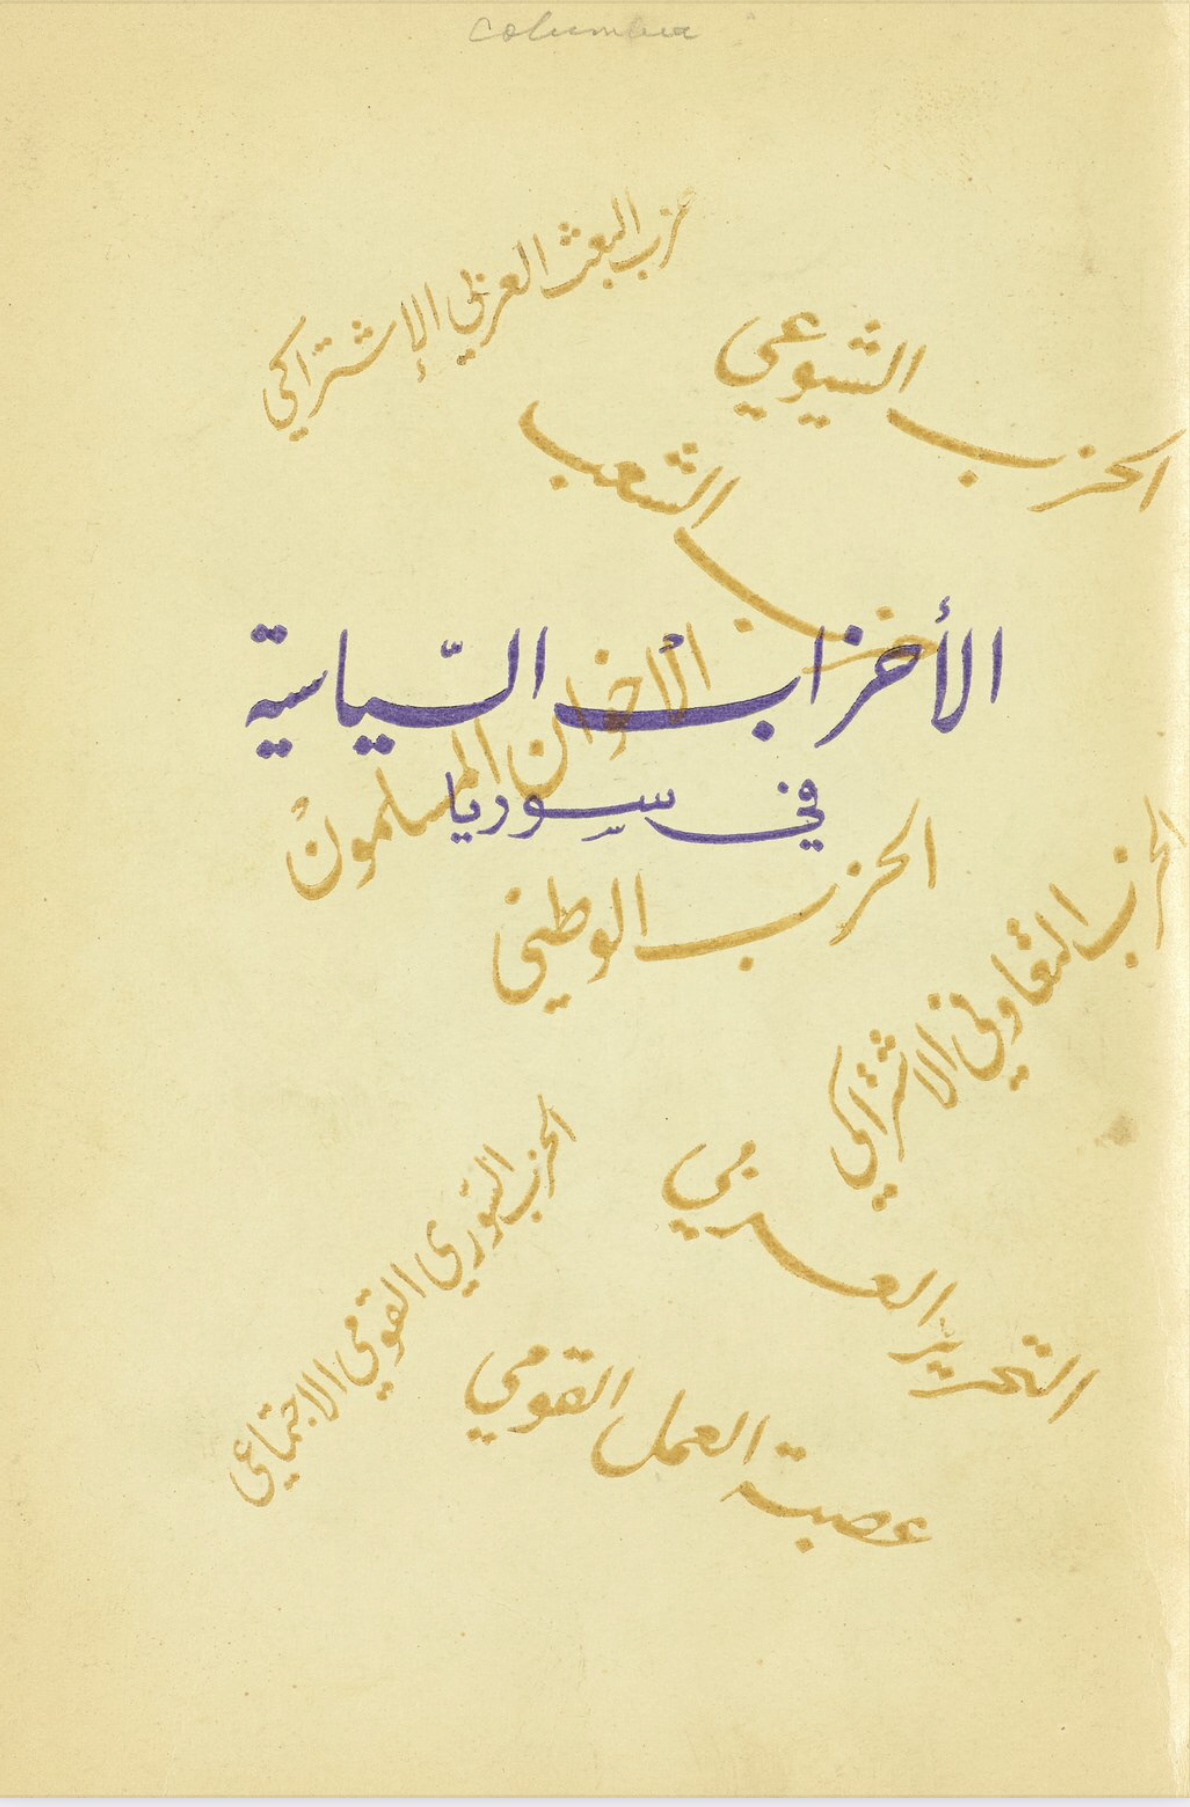 columbia
حزب البعث العربي الإشتراكي
الحزب الشيوعي
حزب الشعب
الأحزاب السّياسية
الاخوان المسلمون
في سوريا
الحزب الوطني
الحزب التعاوني الاشتراكي
التحرير العربي
الحزب السّوري القومي الاجتماعي
عصبة العمل القومي